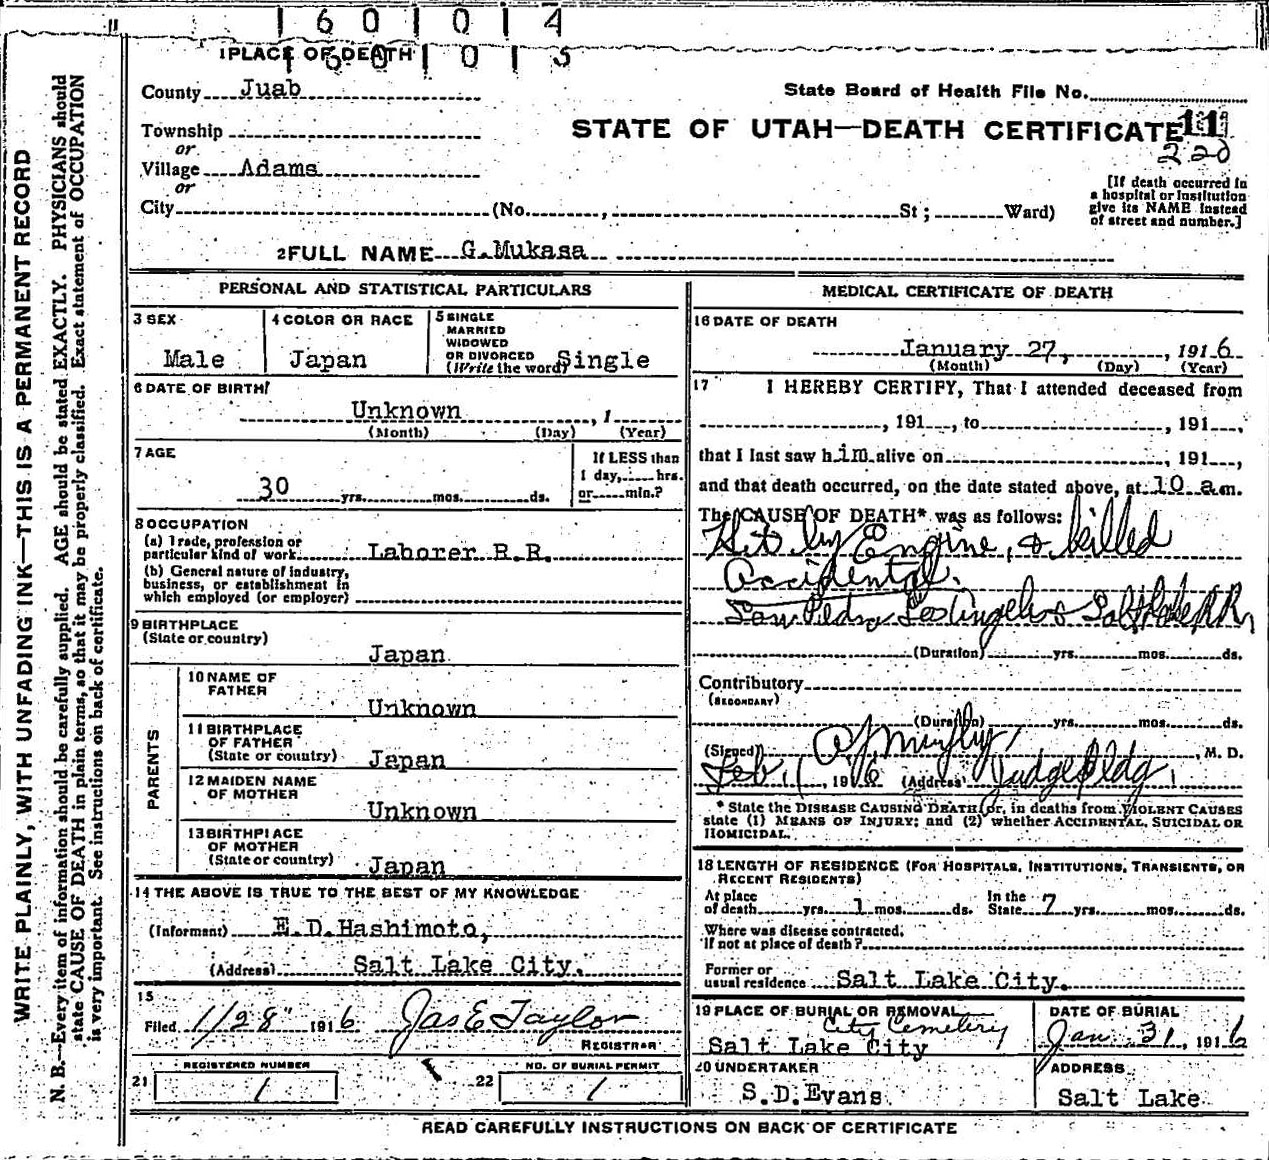 1 6 0 1 0 1 4
1 6 0 1 0 1 5
1 PLACE OF DEATH
County Juab
State Board of Health File No.
Township
STATE OF UTAH—DEATH CERTIFICATE 11
or
220
Village Adams
or
City (No. , St ; Ward)
[If death occurred in
a hospital or institution
give its NAME instead
of street and number.]
2 FULL NAME G.Mukasa
PERSONAL AND STATISTICAL PARTICULARS
3 SEX
Male
4 COLOR OR RACE
Japan
5 SINGLE
MARRIED
WIDOWED
OR DIVORCED
(Write the word) Single
6 DATE OF BIRTH
Unknown , 1
(Month) (Day) (Year)
7 AGE
30 yrs. mos. ds.
If LESS than
1 day, hrs.
or min.?
8 OCCUPATION
(a) Trade, profession or
particular kind of work Laborer R.R.
(b) General nature of industry,
business, or establishment in
which employed (or employer)
9 BIRTHPLACE
(State or country)
Japan
PARENTS
10 NAME OF
FATHER
Unknown
11 BIRTHPLACE
OF FATHER
(State or country) Japan
12 MAIDEN NAME
OF MOTHER
Unknown
13 BIRTHPLACE
OF MOTHER
(State or country) Japan
14 THE ABOVE IS TRUE TO THE BEST OF MY KNOWLEDGE
(Informant) E.D.Hashimoto,
(Address) Salt Lake City.
15
Filed 1/28" 1916 Jas E Taylor
REGISTRAR
REGISTERED NUMBER
21 1
NO. OF BURIAL PERMIT
22 1
MEDICAL CERTIFICATE OF DEATH
16 DATE OF DEATH
January 27, , 1916
(Month) (Day) (Year)
17 I HEREBY CERTIFY, That I attended deceased from
, 191 , to , 191 ,
that I last saw him alive on , 191 ,
and that death occurred, on the date stated above, at 10 a.m.
The CAUSE OF DEATH* was as follows:
Hit by Engine, & killed
Accidental.
San Pedro Los Angeles & Salt Lake RR,
(Duration) yrs. mos. ds.
Contributory
(SECONDARY)
(Duration) yrs. mos. ds.
(Signed) , M. D.
Feb. 1, 1916 (Address) Judge Bldg.
* State the DISEASE CAUSING DEATH, or, in deaths from VIOLENT CAUSES
state (1) MEANS OF INJURY; and (2) whether ACCIDENTAL, SUICIDAL OR
HOMICIDAL.
18 LENGTH OF RESIDENCE (FOR HOSPITALS, INSTITUTIONS, TRANSIENTS, OR
RECENT RESIDENTS)
At place
of death yrs. 1 mos. ds.
In the
State 7 yrs. mos. ds.
Where was disease contracted,
if not at place of death?
Former or
usual residence Salt Lake City.
19 PLACE OF BURIAL OR REMOVAL
City Cemetery
Salt Lake City
DATE OF BURIAL
Jan. 31, 1916
20 UNDERTAKER
S.D.Evans.
ADDRESS
Salt Lake
READ CAREFULLY INSTRUCTIONS ON BACK OF CERTIFICATE
WRITE PLAINLY, WITH UNFADING INK—THIS IS A PERMANENT RECORD
N. B.—Every item of information should be carefully supplied. AGE should be stated EXACTLY. PHYSICIANS should
state CAUSE OF DEATH in plain terms, so that it may be properly classified. Exact statement of OCCUPATION
is very important. See instructions on back of certificate.